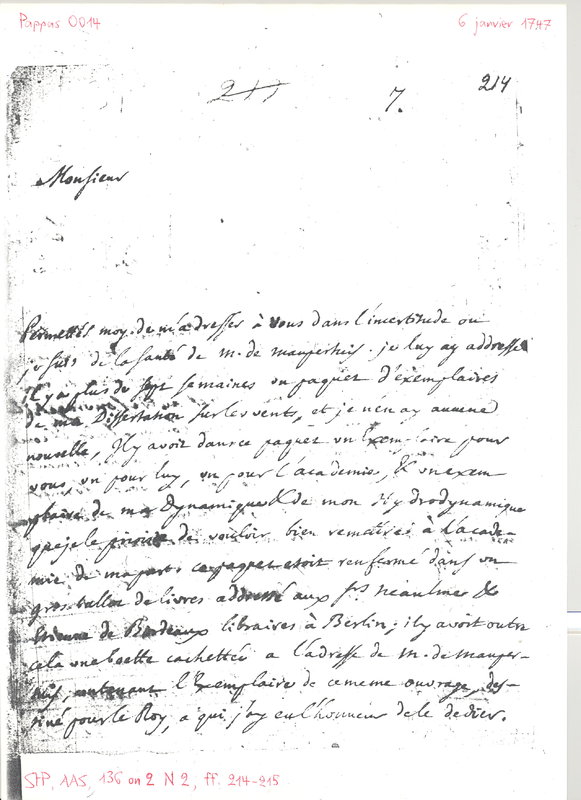 Pappas 0014
6 janvier 1747
211
7.
214
Monsieur
Permettés moy de m'adresser à vous dans l'incertitude ou
je suis de la santé de m. de maupertuis. je luy ay addressé
il y a plus de sept semaines un paquet d'exemplaires
de ma Dissertation sur les vents, et je n'en ay aucune
nouvelle, Il y avoit dans ce paquet un Exemplaire pour
vous, un pour luy, un pour l'academie, & un exem
plaire de ma Dynamique & de mon hydrodynamique
que je le priois de vouloir bien remettre à l'acade-
mie de ma part. ce paquet etoit renfermé dans un
gros ballot de livres addressé aux srs neaulme &
Etienne de Bordeaux libraires à Berlin; il y avoit outre
cela une boette cachettée a l'adresse de m. de mauper-
tuis contenant l'Exemplaire de ce meme ouvrage, des-
tiné pour le Roy, a qui j'ay eu l'honneur de le dedier.
StP, AAS, 136 on 2 N 2, ff. 214-215